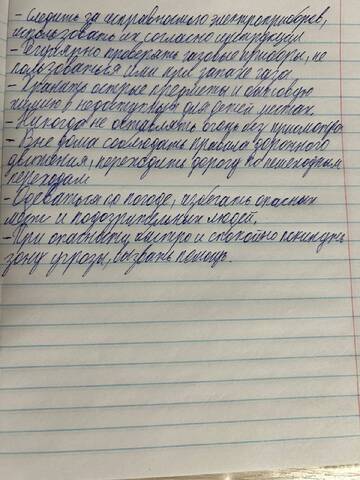 - Следить за исправностью электроприборов,
использовать их согласно инструкции
- Регулярно проверять газовые приборы, не
пользоваться ими при запахе газа
- Хранить острые предметы и бытовую
химию в недоступных для детей местах.
- Никогда не оставлять огонь без присмотра
- Вне дома соблюдать правила дорожного
движения, переходить дорогу по пешеходным
переходам
- Одеваться по погоде, избегать опасных
мест и подозрительных людей.
- При опасности быстро и спокойно покинуть
зону угрозы, вызвать помощь.